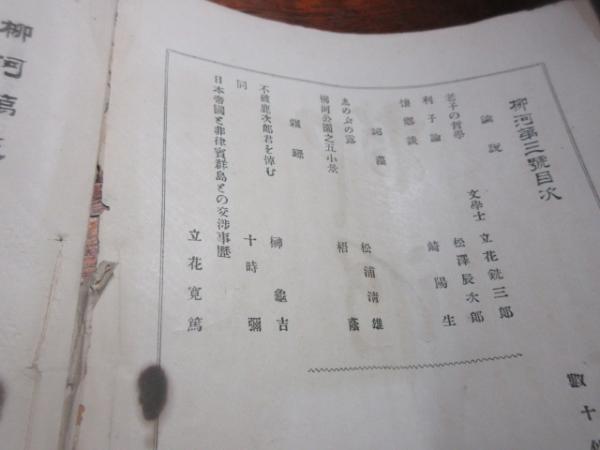 柳河第三號目次
論説
老子の哲學 文學士 立花銑三郎
利子論 松澤辰次郎
懐郷談 崎陽生
記叢
ゑのふの露 松浦清雄
柳河公園之五小景 梧蔭
雜録
不破鹿次郎君を悼む 榊龜吉
同 十時彌
日本帝國と非律賓群島との交渉事歴 立花寛篤
數十
柳河第